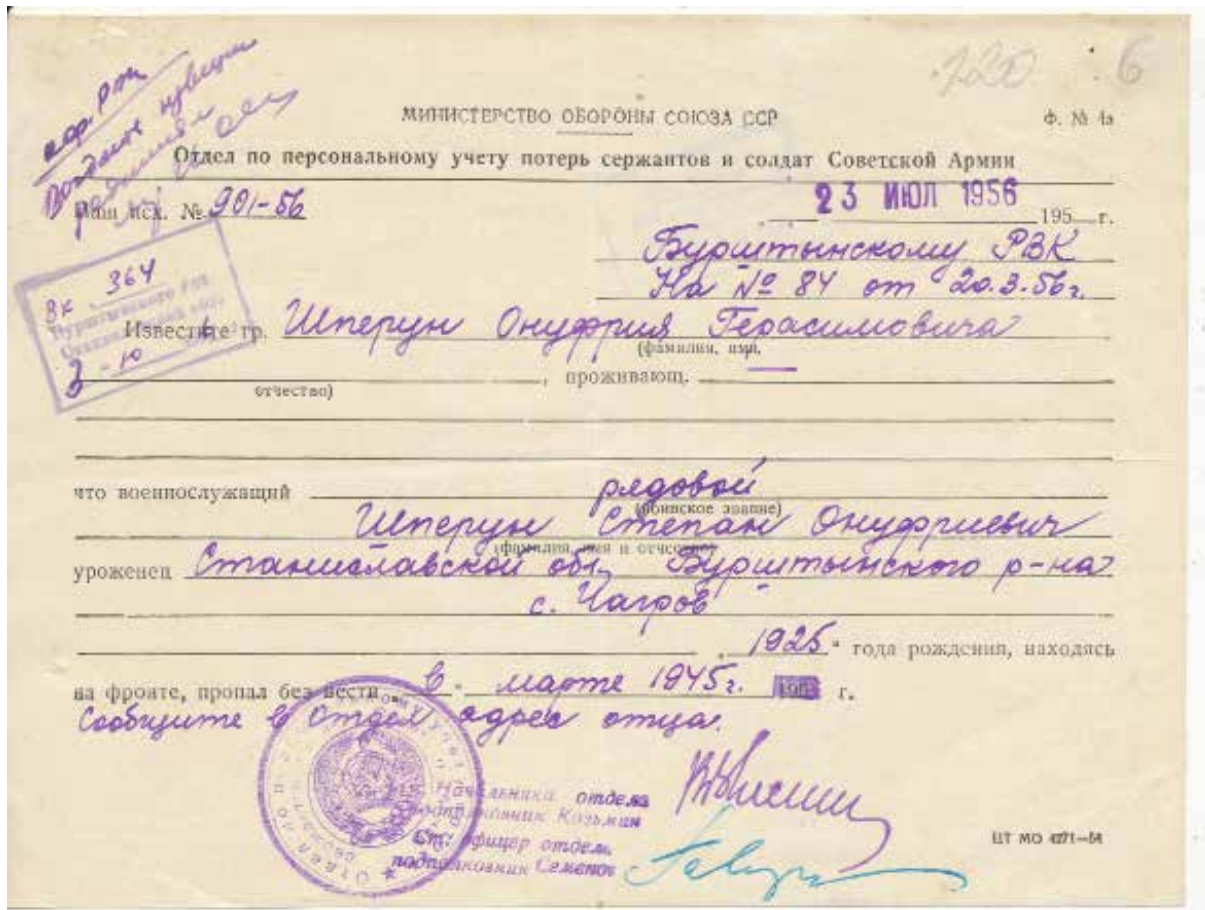 120 6
МИНИСТЕРСТВО ОБОРОНЫ СОЮЗА ССР
Ф. № 4а
Отдел по персональному учету потерь сержантов и солдат Советской Армии
Наш исх. № 901-56
23 ИЮЛ 1956 195 г.
Бурштынскому РВК
На № 84 от 20.3.56г.
Вх 364
Известите гр. Шперун Онуфрия Герасимовича
(фамилия, имя,
отчество)
, проживающ.
что военнослужащий рядовой
(воинское звание)
Шперун Степан Онуфриевич
(фамилия, имя и отчество)
уроженец Станиславской обл, Бурштынского р-на
с. Чагров
„ 1925 " года рождения, находясь
на фронте, пропал без вести „ в " марте 1945г. г.
Сообщите в Отдел адрес отца.
Начальника отдела
подполковник Козьмин
Ст. офицер отдела
подполковник Семенов
ЦТ МО 4271—54